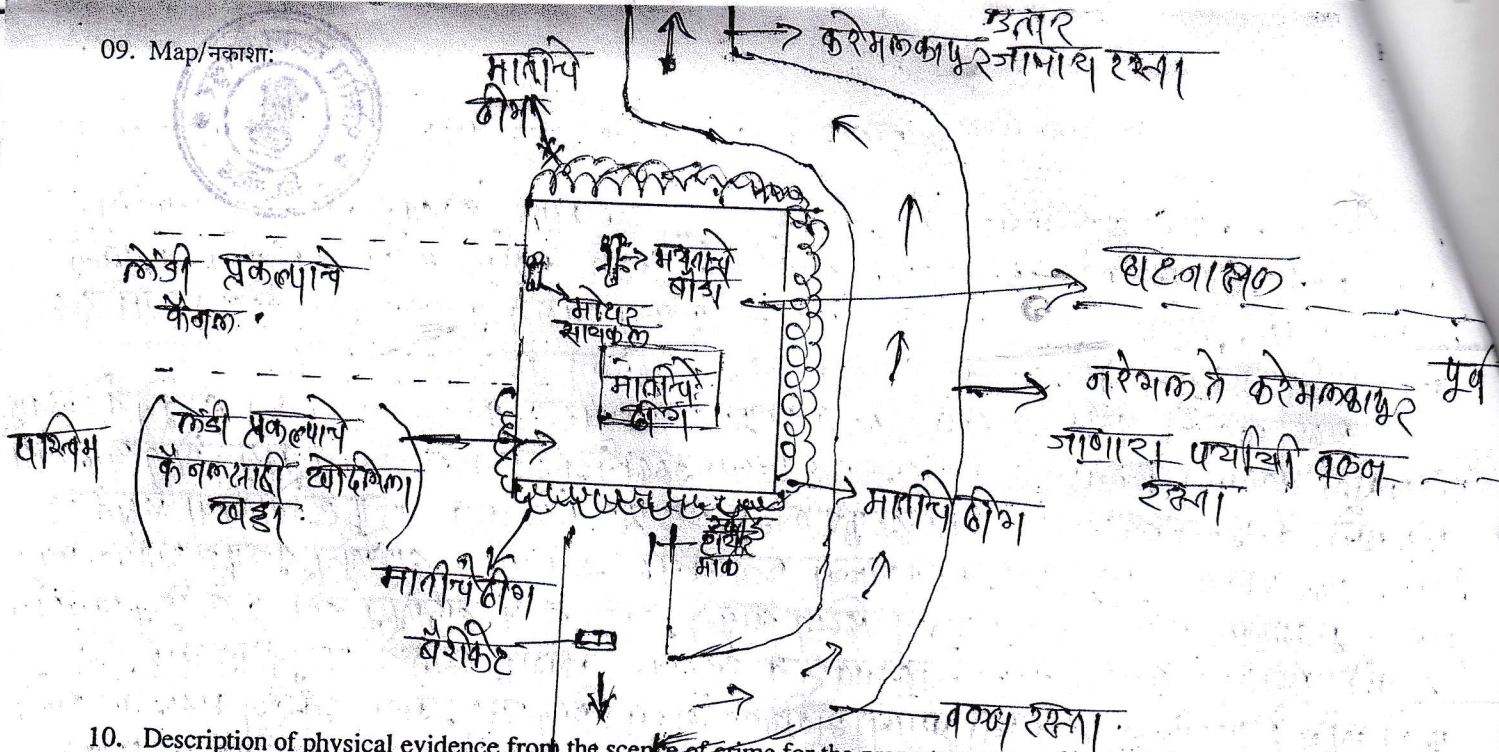 09. Map/नकाशा:
उत्तर
करेमलकापूर जाणारा रस्ता
मातीचे
ढीग
लेंडी प्रकल्पाचे
कॅनल.
मयताचे
बॉडी
मोटर
सायकल
घटनास्थळ.
मातीचे
ढीग
पूर्व
नरंगल ते करेमलकापूर
जाणारा पर्यायी वळण
रस्ता
पश्चिम
लेंडी प्रकल्पाचे
कॅनलसाठी खोदलेला
खड्डा.
मातीचे ढीग
टायर
मार्क
मातीचे ढीग
बॅरीकेट
वळण रस्ता.
10. Description of physical evidence from the scene of crime for the